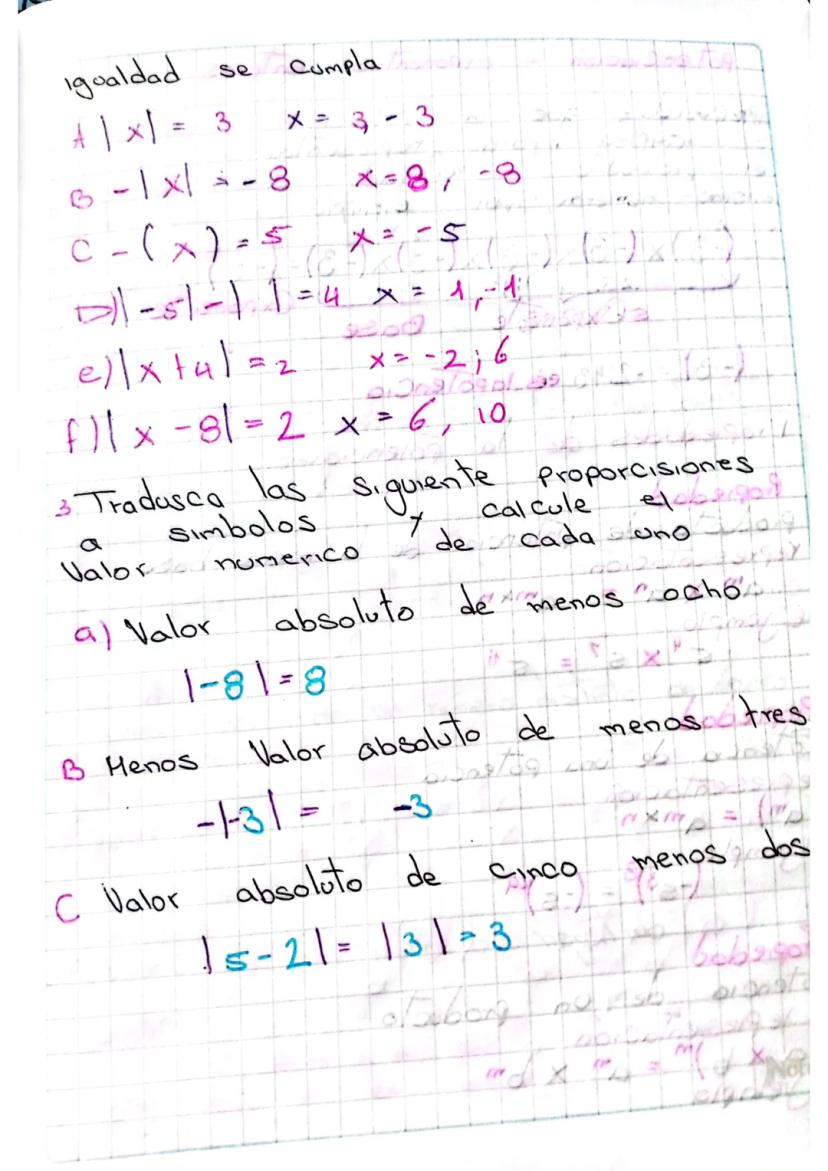 igualdad se cumpla
A |x| = 3 x = 3, - 3
B - |x| = - 8 x = 8, -8
C - (x) = 5 x = -5
D) |-5| - | | = 4 x = 1, -1
e) |x + 4| = 2 x = -2; 6
f) |x - 8| = 2 x = 6, 10
3 Tradusca las siguiente proporcisiones
a simbolos y calcule el
Valor numerico de cada uno
a) Valor absoluto de menos ocho
|-8| = 8
B Menos Valor absoluto de menos tres
-|-3| = -3
C Valor absoluto de cinco menos dos
|5 - 2| = |3| = 3